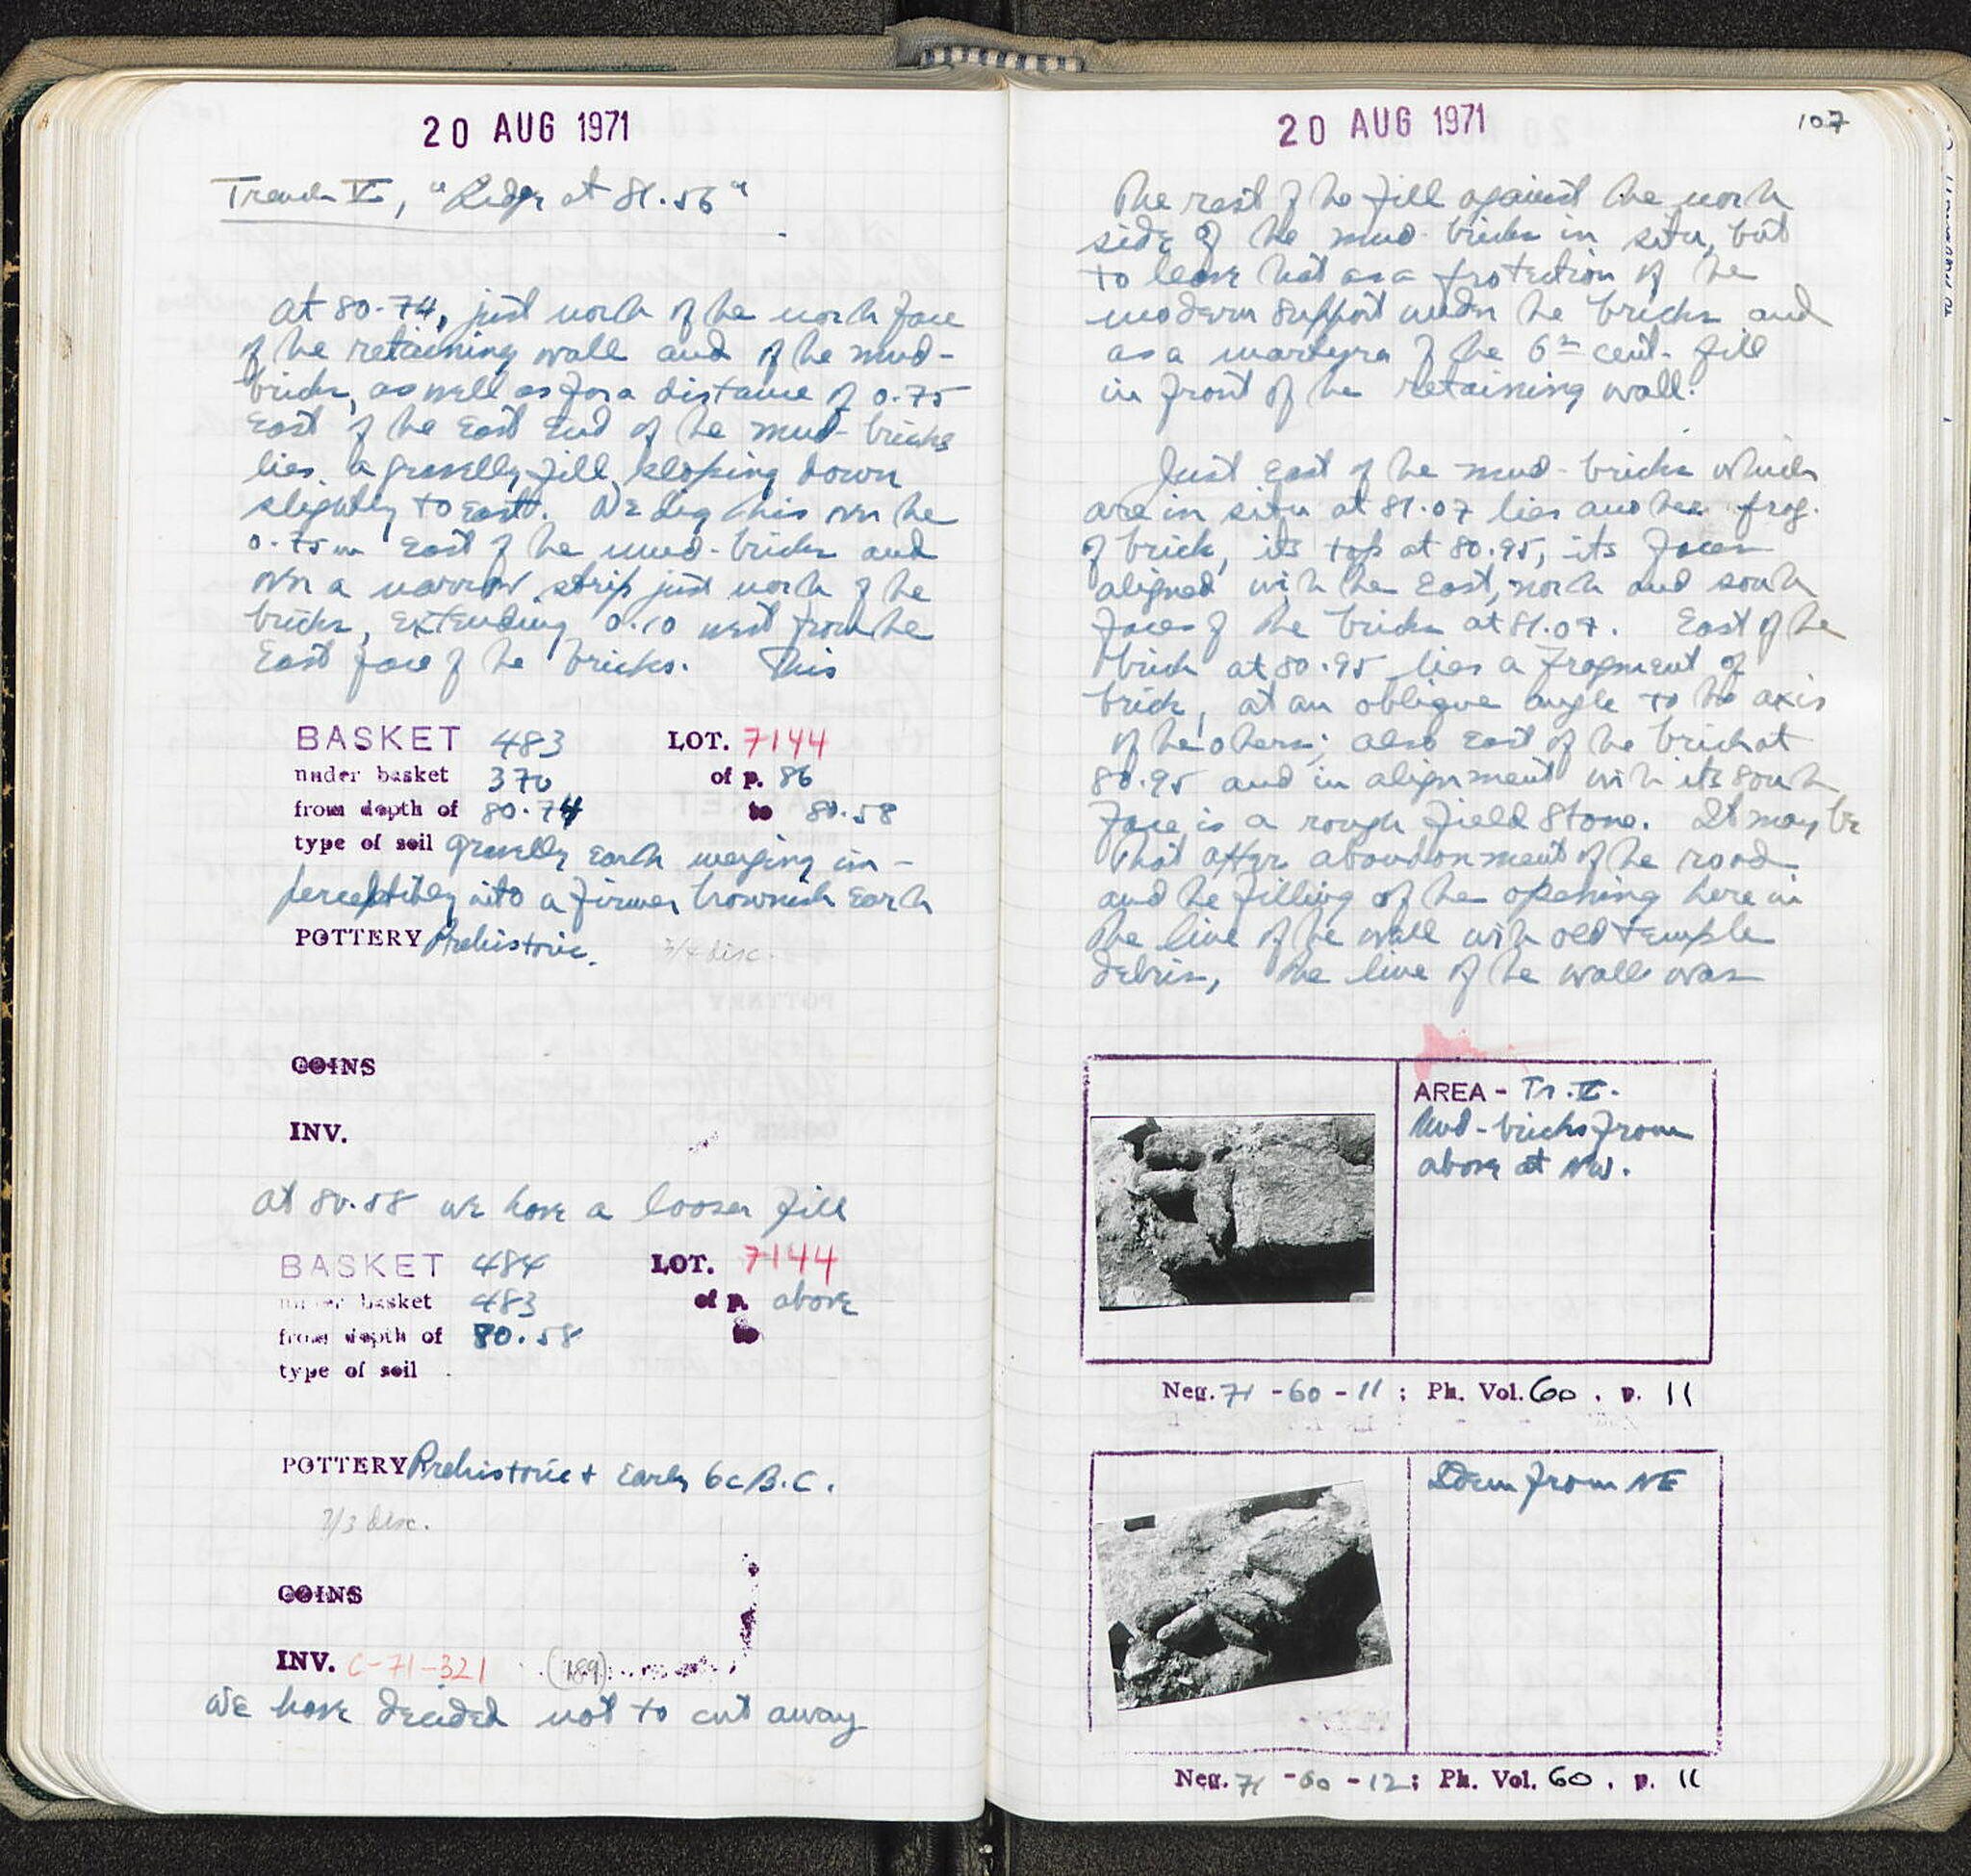 20 AUG 1971
Trench V, "Ridge at 81.56"
At 80.74, just north of the north face
of the retaining wall and of the mud-
bricks, as well as for a distance of 0.75
East of the East End of the mud-bricks
lies a gravelly fill sloping down
slightly to east. We dig this over the
0.75m East of the mud-bricks and
over a narrow strip just north of the
bricks, extending 0.10 west from the
East face of the bricks. This
BASKET 483 LOT. 7144
under basket 370 of p. 86
from depth of 80.74 to 80.58
type of soil gravelly earth merging im-
perceptibly into a firmer brownish earth
POTTERY Prehistoric. 3/4 disc.
COINS
INV.
At 80.58 we have a looser fill
BASKET 484 LOT. 7144
under basket 483 of p. above
from depth of 80.58 to
type of soil
POTTERY Prehistoric + Early 6c B.C.
2/3 disc.
COINS
INV. C-71-321 (189)
We have decided not to cut away
20 AUG 1971
107
the rest of the fill against the north
side of the mud-bricks in situ, but
to leave that as a protection of the
modern support under the bricks and
as a martyra of the 6th cent. fill
in front of the retaining wall.
Just East of the mud-bricks which
are in situ at 81.07 lies another frag.
of brick, its top at 80.95, its faces
aligned with the East, north and south
faces of the bricks at 81.07. East of the
brick at 80.95 lies a fragment of
brick, at an oblique angle to the axis
of the others; also East of the brick at
80.95 and in alignment with its south
face is a rough field stone. It may be
that after abandonment of the road
and the filling of the opening here in
the line of the wall with old temple
debris, the line of the wall was
AREA - Tr. V.
Mud-bricks from
above at NW.
Neg. 71-60-11; Ph. Vol. 60, p. 11
Idem from NE
Neg. 71-60-12; Ph. Vol. 60, p. 11